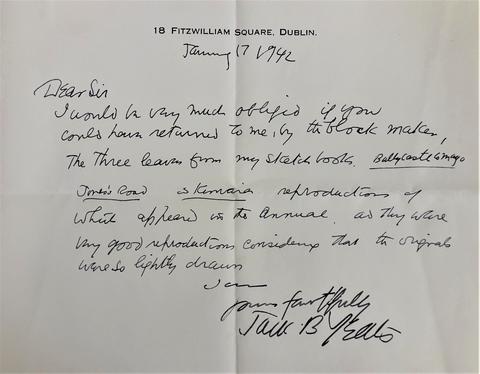 18 FITZWILLIAM SQUARE, DUBLIN.
January 17 1942
Dear Sir
I would be very much obliged if you
could have returned to me, by the block maker,
the Three leaves from my sketch books. Ballycastle Mayo
Jones's Road & Kenmare reproductions of
which appeared in the Annual. as they were
very good reproductions considering that the originals
were so lightly drawn
I am
yours faithfully
Jack B Yeats